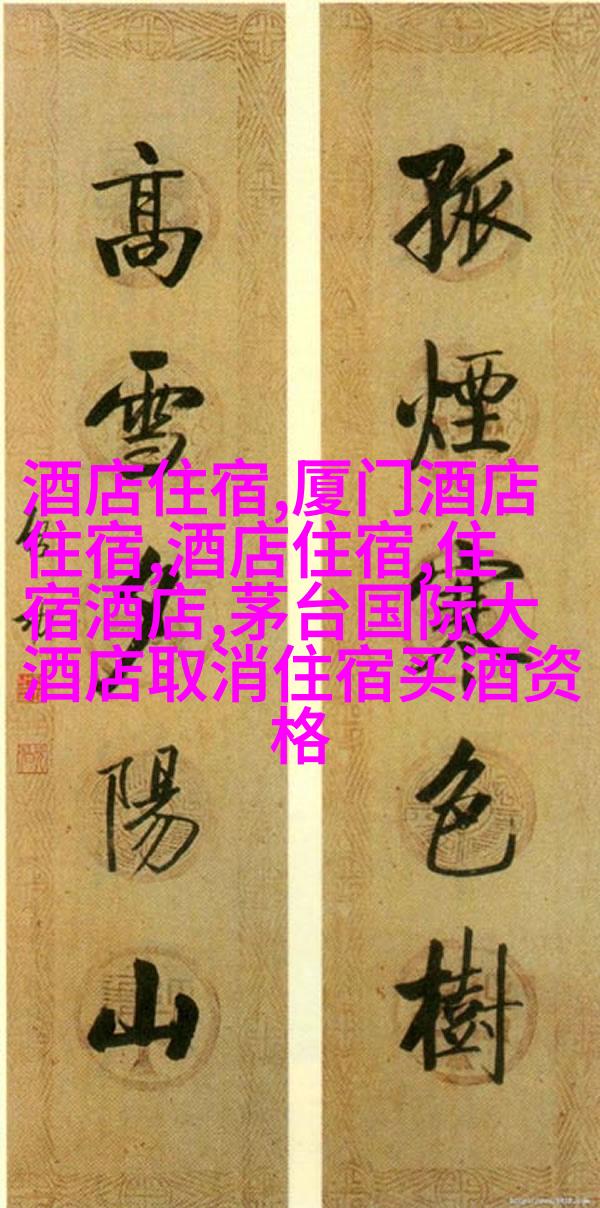 孤煙寒色樹
高雪夕陽山
酒店住宿,厦门酒店
住宿,酒店住宿,住
宿酒店,茅台国际大
酒店取消住宿买酒资
格